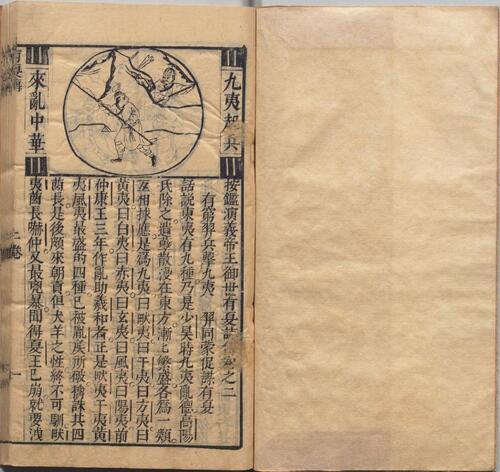 九夷起兵
來亂中華
按鑑演義帝王御世有夏誌傳卷之二
有窮羿兵擊九夷 羿同蒙促謀有夏
話說東夷有九種乃是少昊時九夷亂德高陽
氏除之遺孽散漫在東方漸漸繁盛各為一類
互相採應是為九夷曰畎夷曰于夷曰方夷曰
黃夷曰白夷曰赤夷曰玄夷曰風夷曰陽夷前
仲康王三年作亂助羲和者正是畎夷于夷黃
夷風夷最盛的四種已被胤侯所破擒誅其四
酋長是後頗來朝貢但犬羊之性終不可馴畎
夷酋長嚇仲又最兇暴聞得夏王已崩就要洩
有夏傳
二卷
一